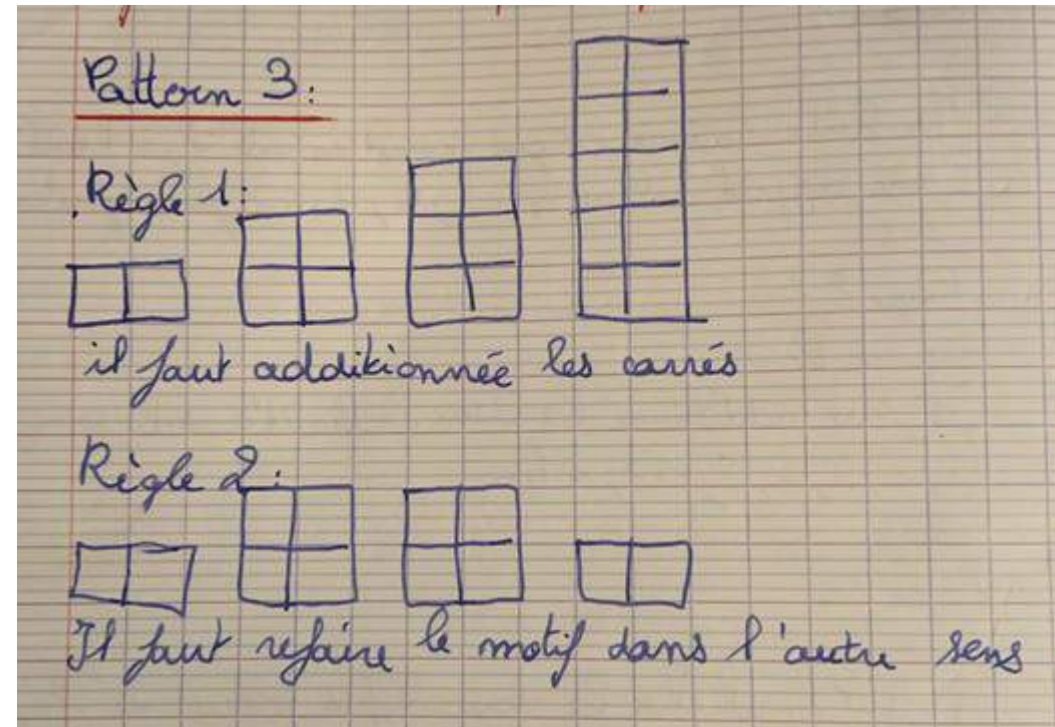 Pattern 3:
Règle 1:
il faut additionnée les carrés
Règle 2:
Il faut refaire le motif dans l'autre sens